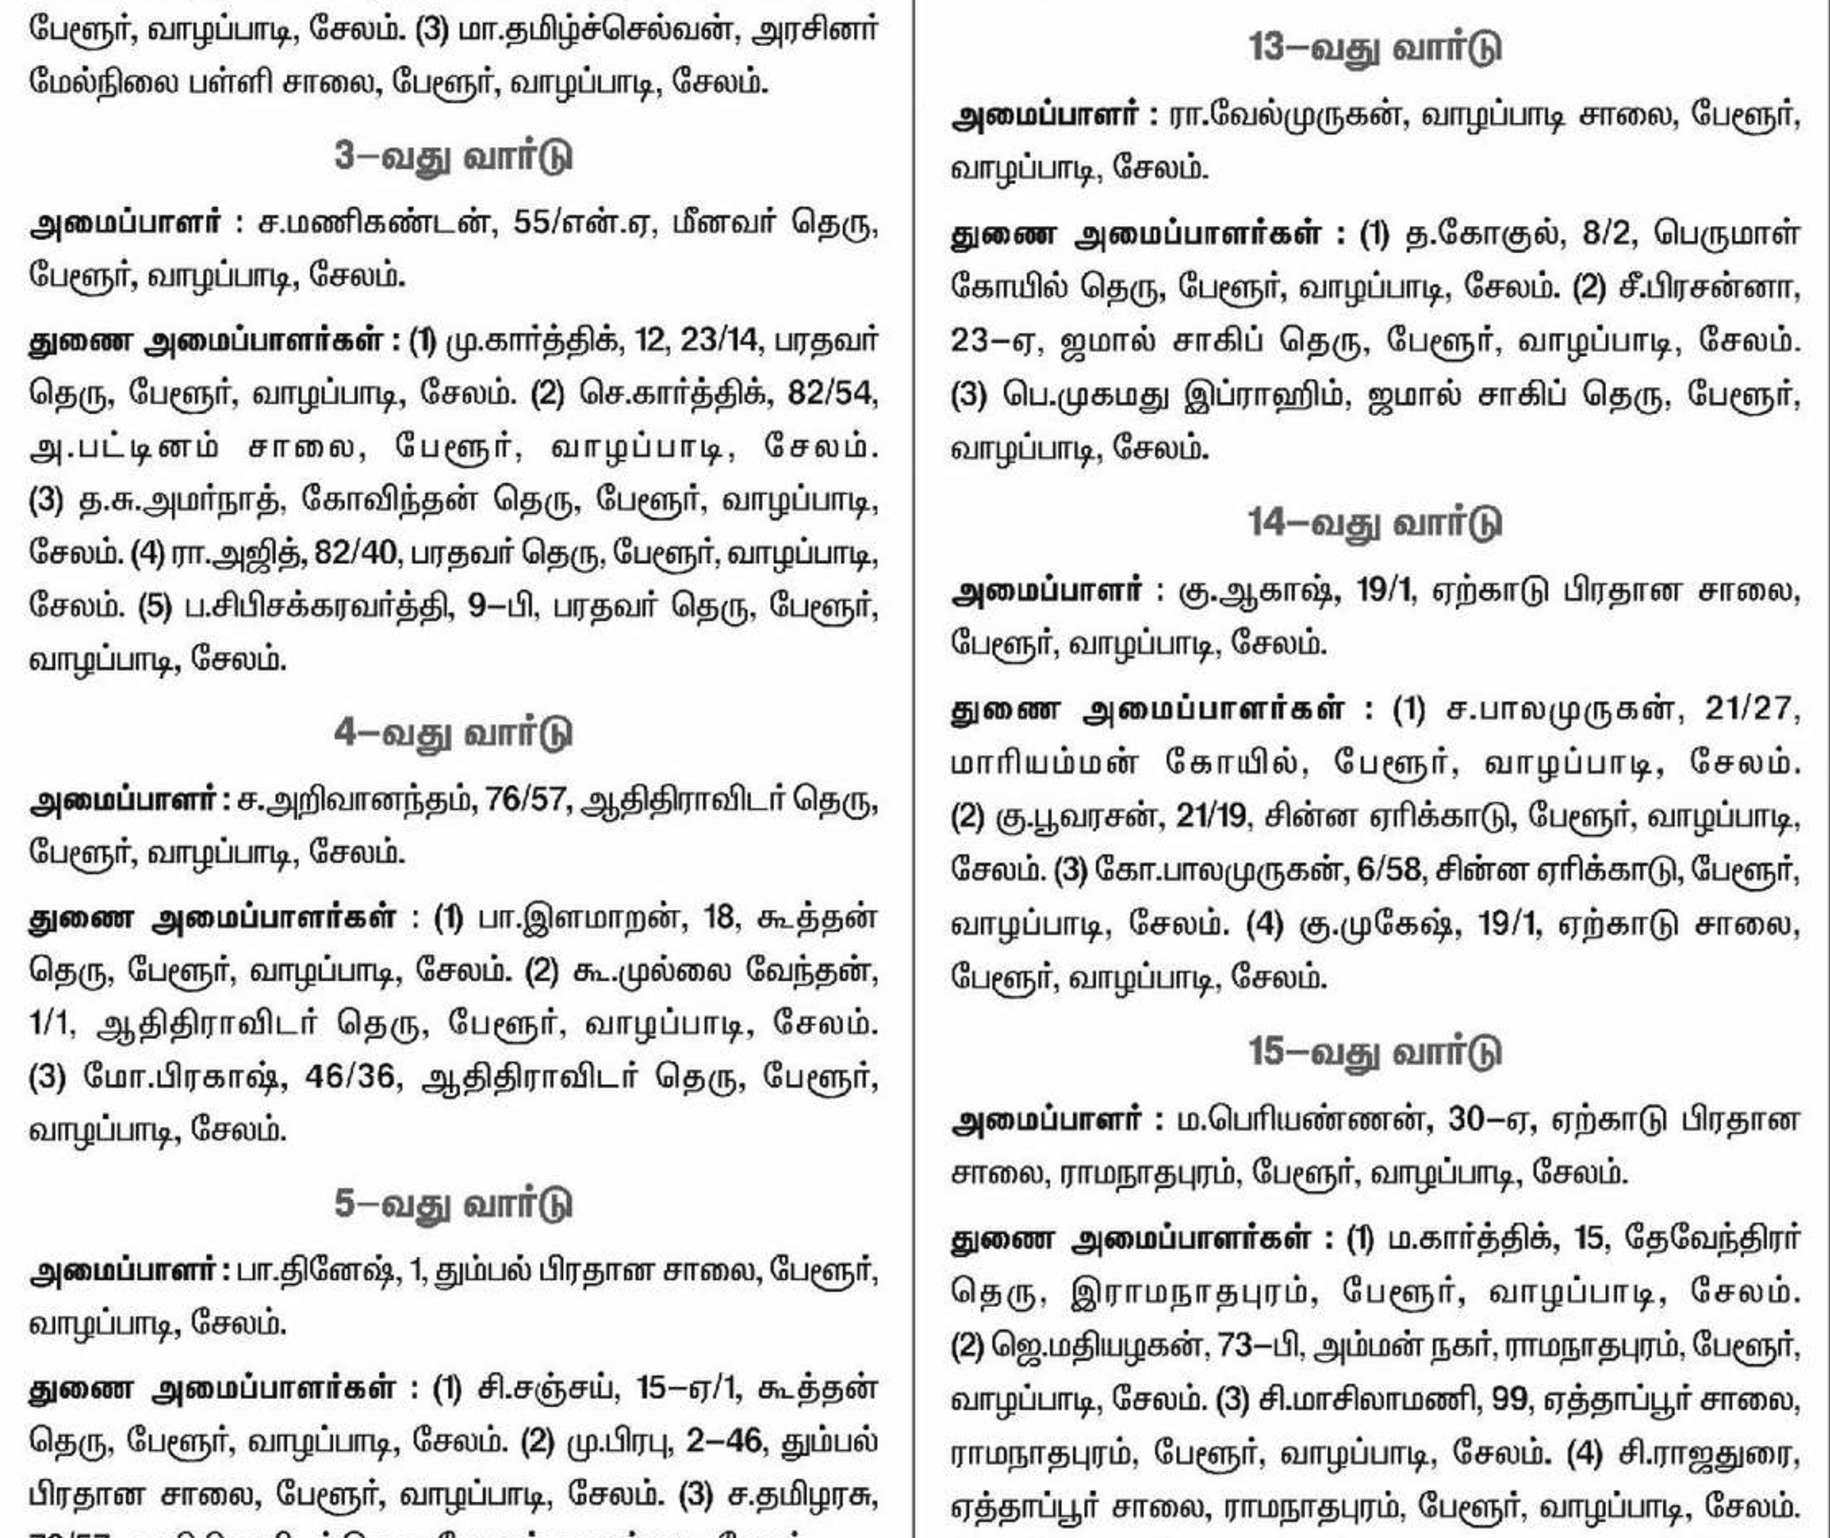 பேளூர், வாழப்பாடி, சேலம். (3) மா.தமிழ்ச்செல்வன், அரசினர்
மேல்நிலை பள்ளி சாலை, பேளூர், வாழப்பாடி, சேலம்.
3–வது வார்டு
அமைப்பாளர் : ச.மணிகண்டன், 55/என்.ஏ, மீனவர் தெரு,
பேளூர், வாழப்பாடி, சேலம்.
துணை அமைப்பாளர்கள் : (1) மு.கார்த்திக், 12, 23/14, பரதவர்
தெரு, பேளூர், வாழப்பாடி, சேலம். (2) செ.கார்த்திக், 82/54,
அ.பட்டினம் சாலை, பேளூர், வாழப்பாடி, சேலம்.
(3) த.சு.அமர்நாத், கோவிந்தன் தெரு, பேளூர், வாழப்பாடி,
சேலம். (4) ரா.அஜித், 82/40, பரதவர் தெரு, பேளூர், வாழப்பாடி,
சேலம். (5) ப.சிபிசக்கரவர்த்தி, 9–பி, பரதவர் தெரு, பேளூர்,
வாழப்பாடி, சேலம்.
4–வது வார்டு
அமைப்பாளர் : ச.அறிவானந்தம், 76/57, ஆதிதிராவிடர் தெரு,
பேளூர், வாழப்பாடி, சேலம்.
துணை அமைப்பாளர்கள் : (1) பா.இளமாறன், 18, கூத்தன்
தெரு, பேளூர், வாழப்பாடி, சேலம். (2) கூ.முல்லை வேந்தன்,
1/1, ஆதிதிராவிடர் தெரு, பேளூர், வாழப்பாடி, சேலம்.
(3) மோ.பிரகாஷ், 46/36, ஆதிதிராவிடர் தெரு, பேளூர்,
வாழப்பாடி, சேலம்.
5–வது வார்டு
அமைப்பாளர் : பா.தினேஷ், 1, தும்பல் பிரதான சாலை, பேளூர்,
வாழப்பாடி, சேலம்.
துணை அமைப்பாளர்கள் : (1) சி.சஞ்சய், 15–ஏ/1, கூத்தன்
தெரு, பேளூர், வாழப்பாடி, சேலம். (2) மு.பிரபு, 2–46, தும்பல்
பிரதான சாலை, பேளூர், வாழப்பாடி, சேலம். (3) ச.தமிழரசு,
13–வது வார்டு
அமைப்பாளர் : ரா.வேல்முருகன், வாழப்பாடி சாலை, பேளூர்,
வாழப்பாடி, சேலம்.
துணை அமைப்பாளர்கள் : (1) த.கோகுல், 8/2, பெருமாள்
கோயில் தெரு, பேளூர், வாழப்பாடி, சேலம். (2) சீ.பிரசன்னா,
23–ஏ, ஜமால் சாகிப் தெரு, பேளூர், வாழப்பாடி, சேலம்.
(3) பெ.முகமது இப்ராஹிம், ஜமால் சாகிப் தெரு, பேளூர்,
வாழப்பாடி, சேலம்.
14–வது வார்டு
அமைப்பாளர் : கு.ஆகாஷ், 19/1, ஏற்காடு பிரதான சாலை,
பேளூர், வாழப்பாடி, சேலம்.
துணை அமைப்பாளர்கள் : (1) ச.பாலமுருகன், 21/27,
மாரியம்மன் கோயில், பேளூர், வாழப்பாடி, சேலம்.
(2) கு.பூவரசன், 21/19, சின்ன ஏரிக்காடு, பேளூர், வாழப்பாடி,
சேலம். (3) கோ.பாலமுருகன், 6/58, சின்ன ஏரிக்காடு, பேளூர்,
வாழப்பாடி, சேலம். (4) கு.முகேஷ், 19/1, ஏற்காடு சாலை,
பேளூர், வாழப்பாடி, சேலம்.
15–வது வார்டு
அமைப்பாளர் : ம.பெரியண்ணன், 30–ஏ, ஏற்காடு பிரதான
சாலை, ராமநாதபுரம், பேளூர், வாழப்பாடி, சேலம்.
துணை அமைப்பாளர்கள் : (1) ம.கார்த்திக், 15, தேவேந்திரர்
தெரு, இராமநாதபுரம், பேளூர், வாழப்பாடி, சேலம்.
(2) ஜெ.மதியழகன், 73–பி, அம்மன் நகர், ராமநாதபுரம், பேளூர்,
வாழப்பாடி, சேலம். (3) சி.மாசிலாமணி, 99, ஏத்தாப்பூர் சாலை,
ராமநாதபுரம், பேளூர், வாழப்பாடி, சேலம். (4) சி.ராஜதுரை,
ஏத்தாப்பூர் சாலை, ராமநாதபுரம், பேளூர், வாழப்பாடி, சேலம்.